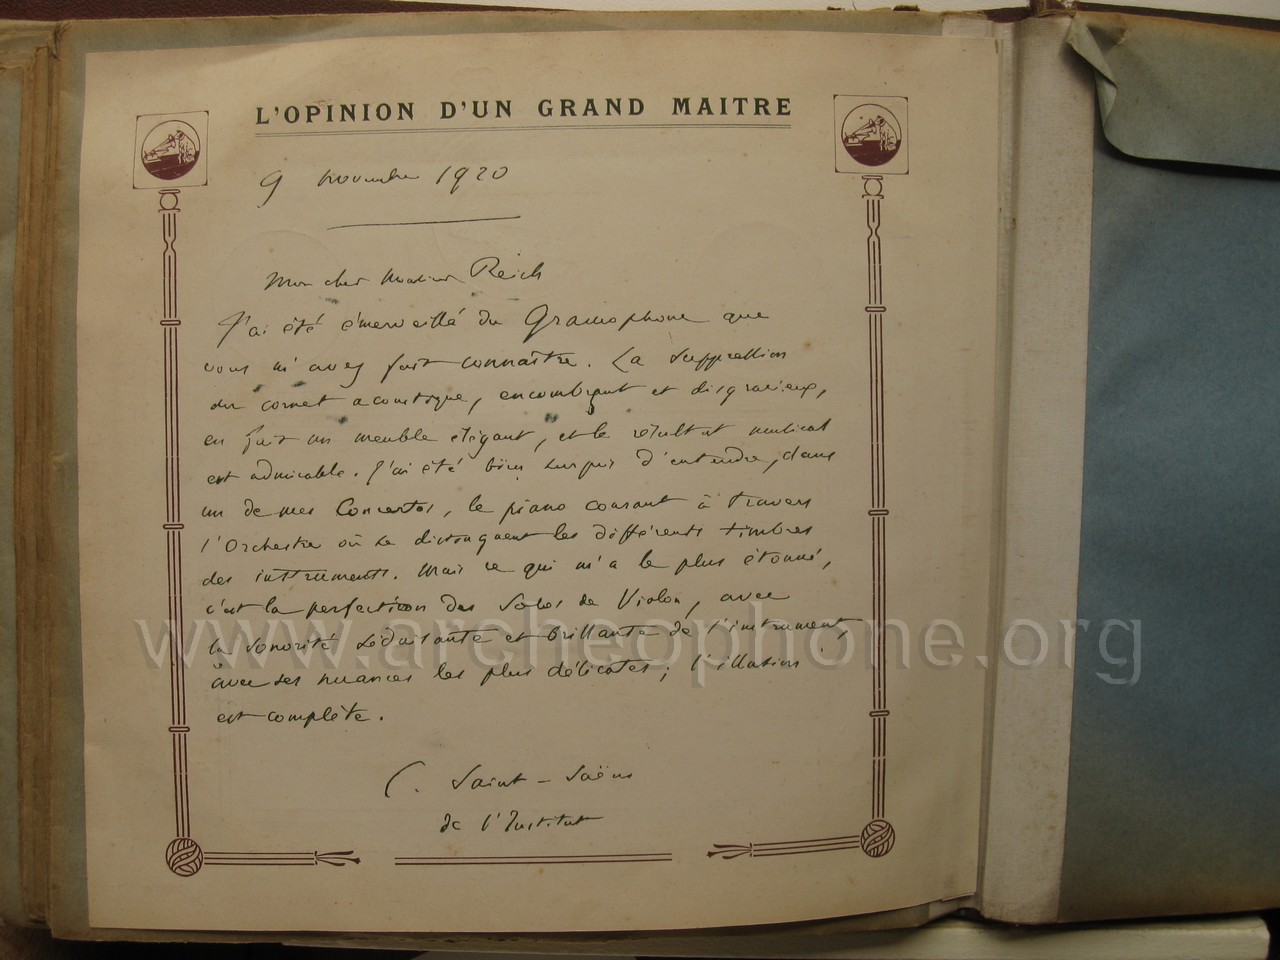 L'OPINION D'UN GRAND MAITRE
9 novembre 1920
Mon cher Monsieur Reich
J'ai été émerveillé du Gramophone que
vous m'avez fait connaître. La suppression
du cornet acoustique, encombrant et disgracieux,
en fait un meuble élégant, et le résultat musical
est admirable. J'ai été bien surpris d'entendre, dans
un de mes Concertos, le piano courant à travers
l'Orchestre où se distinguent les différents timbres
des instruments. Mais ce qui m'a le plus étonné,
c'est la perfection des Solos de Violon, avec
la sonorité séduisante et brillante de l'instrument,
avec ses nuances les plus délicates ; l'illusion
est complète.
C. Saint-Saëns
de l'Institut
www.archeophone.org